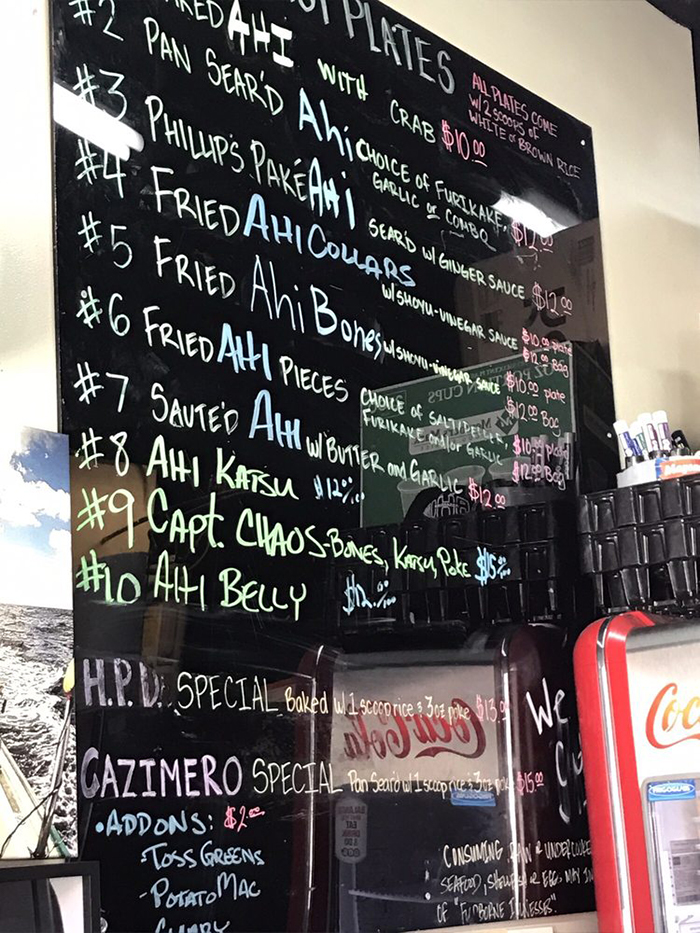 HOT PLATES
ALL PLATES COME
w/ 2 SCOOPS OF
WHITE or BROWN RICE
AHI WITH CRAB $10.00
#2 PAN SEAR'D Ahi CHOICE of FURIKAKE,
GARLIC or COMBO
#3 PHILLIP'S PAKÉ AHI SEAR'D w/ GINGER SAUCE $12.00
#4 FRIED AHI COLLARS w/ SHOYU-VINEGAR SAUCE $10.00 plate
$12.00 Bag
#5 FRIED Ahi Bones w/ SHOYU-VINEGAR SAUCE $10.00 plate
$12.00 Bag
#6 FRIED AHI PIECES CHOICE of SALT/PEPPER,
FURIKAKE and/or GARLIC $10.00 plate
$12.00 Bag
#7 SAUTE'D AHI w/ BUTTER and GARLIC $12.00
#8 AHI KATSU $12.00
#9 Capt. CHAOS-BONES, KATSU, POKE $15.00
#10 AHI BELLY $12.00
H.P.D. SPECIAL Baked w/ 1 scoop rice & 3 oz poke $13.00
CAZIMERO SPECIAL Pan Sear'd w/ 1 scoop rice & 3 oz poke $15.00
• ADD ONS: $2.00
-TOSS GREENS
-POTATO MAC
We
CONSUMING RAW or UNDERCOOKED
SEAFOOD, SHELLFISH or EGGS MAY
OF "FOODBORNE ILLNESSES".
Coca-Cola